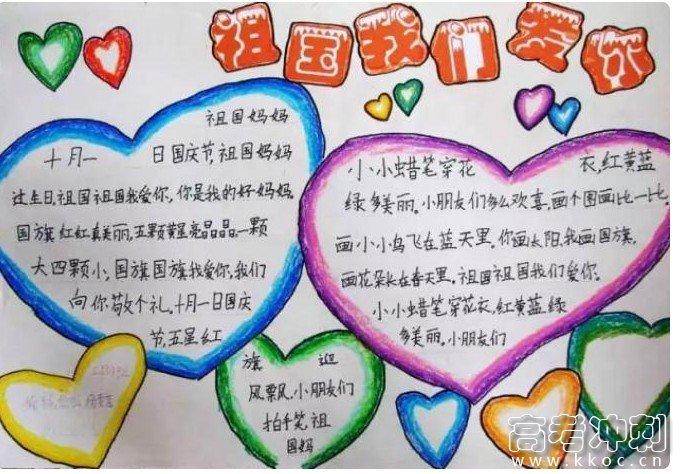 祖国我们爱你
祖国妈妈
十月一 日国庆节,祖国妈妈
过生日,祖国祖国我爱你,你是我的好妈妈。
国旗红红真美丽,五颗黄星亮晶晶,一颗
大四颗小,国旗国旗我爱你,我们
向你敬个礼。十月一日国庆
节,五星红
旗 迎
风飘飘,小朋友们
拍手笑,祖
国妈
小小蜡笔穿花 衣,红黄蓝
绿多美丽。小朋友们多么欢喜,画个图画比一比,
画小小鸟飞在蓝天里,你画太阳,我画国旗,
画花朵长在春天里。祖国祖国我们爱你。
小小蜡笔穿花衣,红黄蓝绿
多美丽。小朋友们
高考冲刺
www.kkoc.cn